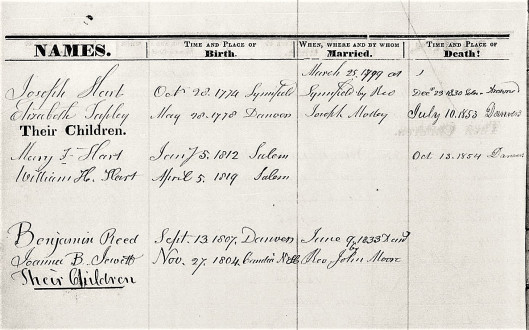 NAMES. TIME AND PLACE OF Birth. WHEN, WHERE AND BY WHOM Married. TIME AND PLACE OF Death!
March 25, 1799 at
Joseph Hart Oct 28. 1774 Lynnfield Lynnfield by Rev Dec 23 1830
Elizabeth Tapley May 28. 1778 Danvers Joseph Motley July 10. 1853 Danvers
Their Children.
Mary F. Hart Jan 5. 1812 Salem Oct 13. 1854 Danvers
William H. Hart April 5. 1819 Salem
Benjamin Reed Sept. 13. 1807. Danvers June 9, 1833
by
Joanna B. Jewett Nov. 27. 1804. Rev John Moore
Their Children